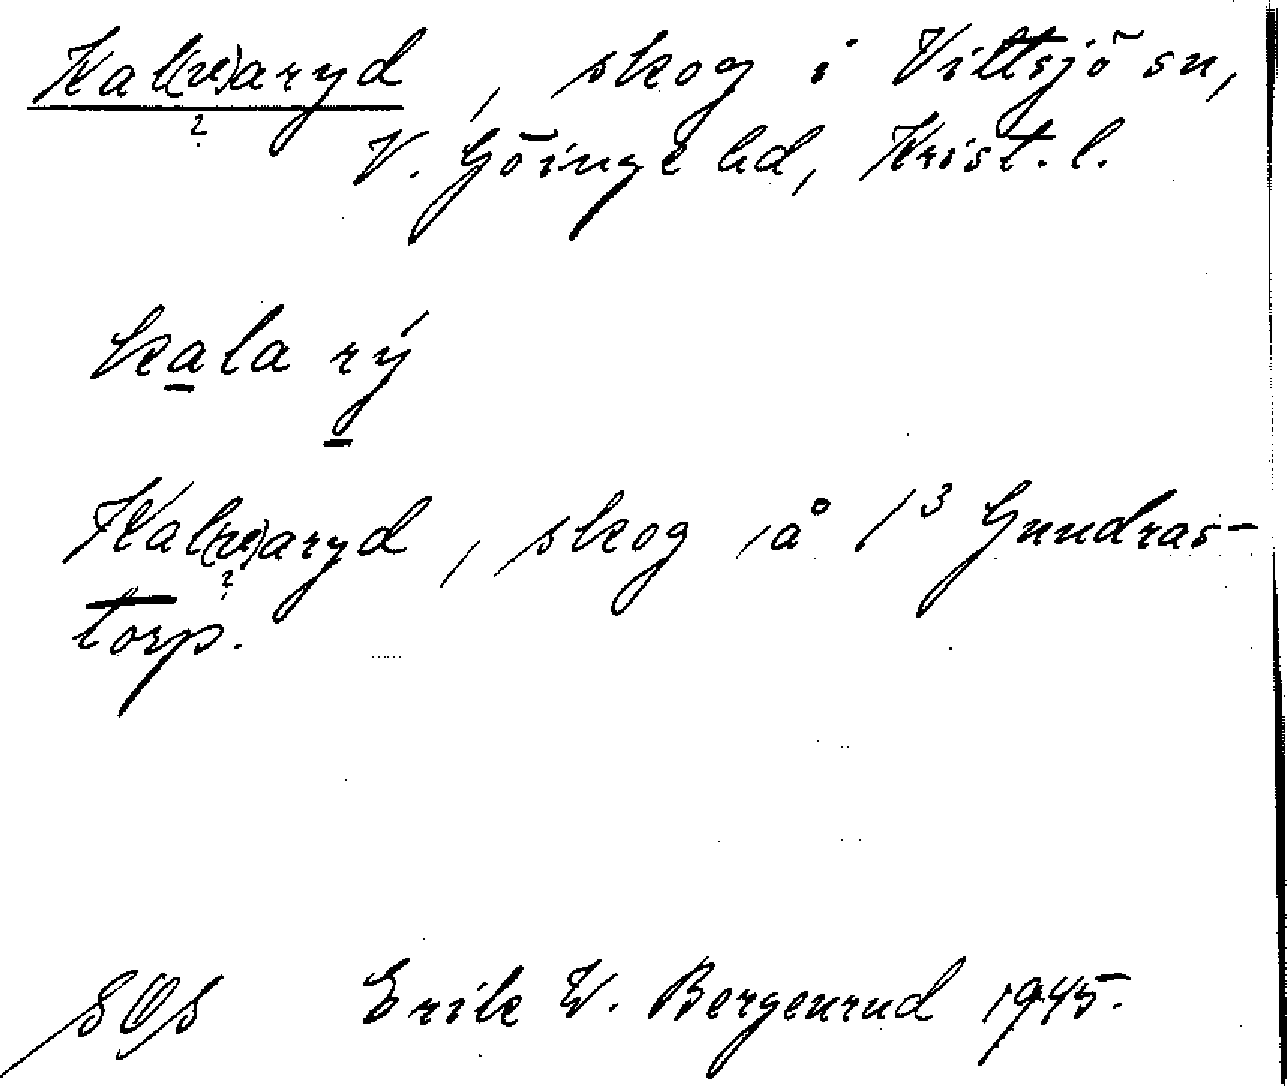 Kal(v)aryd, skog i Vittsjö sn,
?
V. Göinge hd, Krist. l.
kala rý
Kal(v)aryd, skog å 1³ Gundras-
?
torp.
SOS Erik W. Bergenrud 1945.